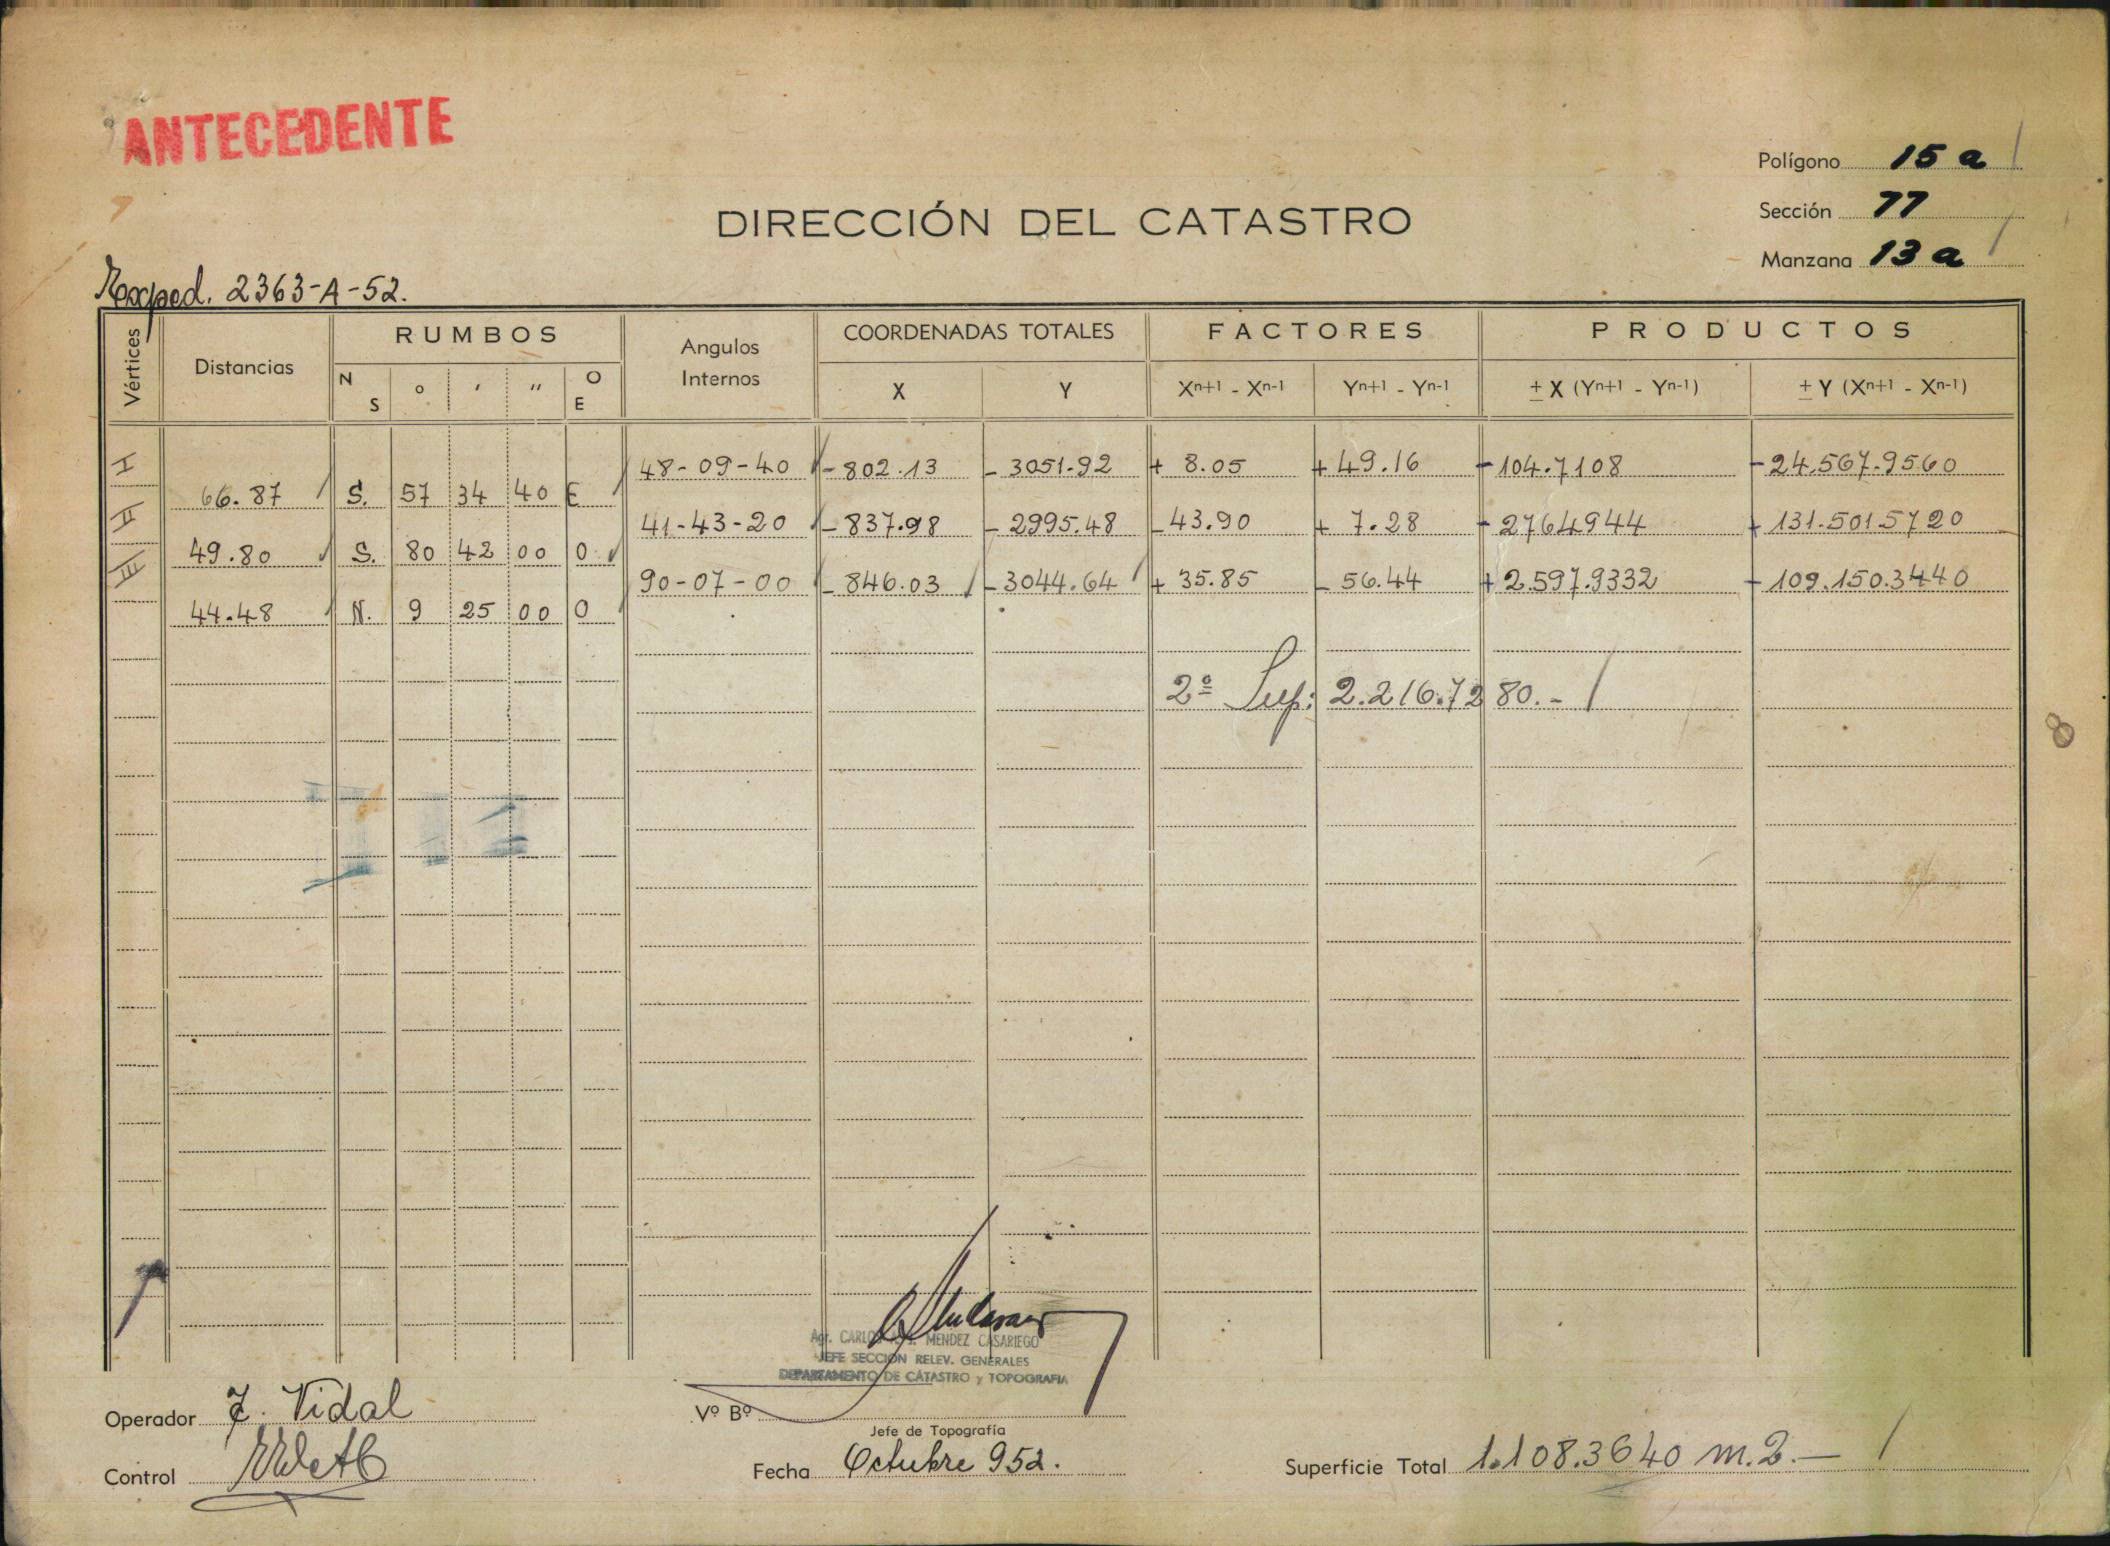 ANTECEDENTE
Polígono 15 a
Sección 77
Manzana 13 a
DIRECCIÓN DEL CATASTRO
Exped. 2363-A-52.
Vértices Distancias RUMBOS Angulos Internos COORDENADAS TOTALES FACTORES PRODUCTOS
N S o ' '' O E X Y Xn+1 - Xn-1 Yn+1 - Yn-1 ± X (Yn+1 - Yn-1) ± Y (Xn+1 - Xn-1)
I 48-09-40 -802.13 -3051.92 + 8.05 +49.16 -104.7108 -24.567.9560
66.87 S. 57 34 40 E
II 41-43-20 -837.98 -2995.48 -43.90 + 7.28 -2764944 + 131.501.5720
49.80 S. 80 42 00 O
III 90-07-00 -846.03 -3044.64 + 35.85 - 56.44 +2.597.9332 - 109.150.3440
44.48 N. 9 25 00 O
2º Sup: 2.216.7280.-
8
Agr. CARLOS MENDEZ CASARIEGO
JEFE SECCIÓN RELEV. GENERALES
DEPARTAMENTO DE CATASTRO y TOPOGRAFIA
Operador Vidal
Vº Bº
Jefe de Topografía
Control
Fecha Octubre 952.
Superficie Total 1.108.3640 m.2.-